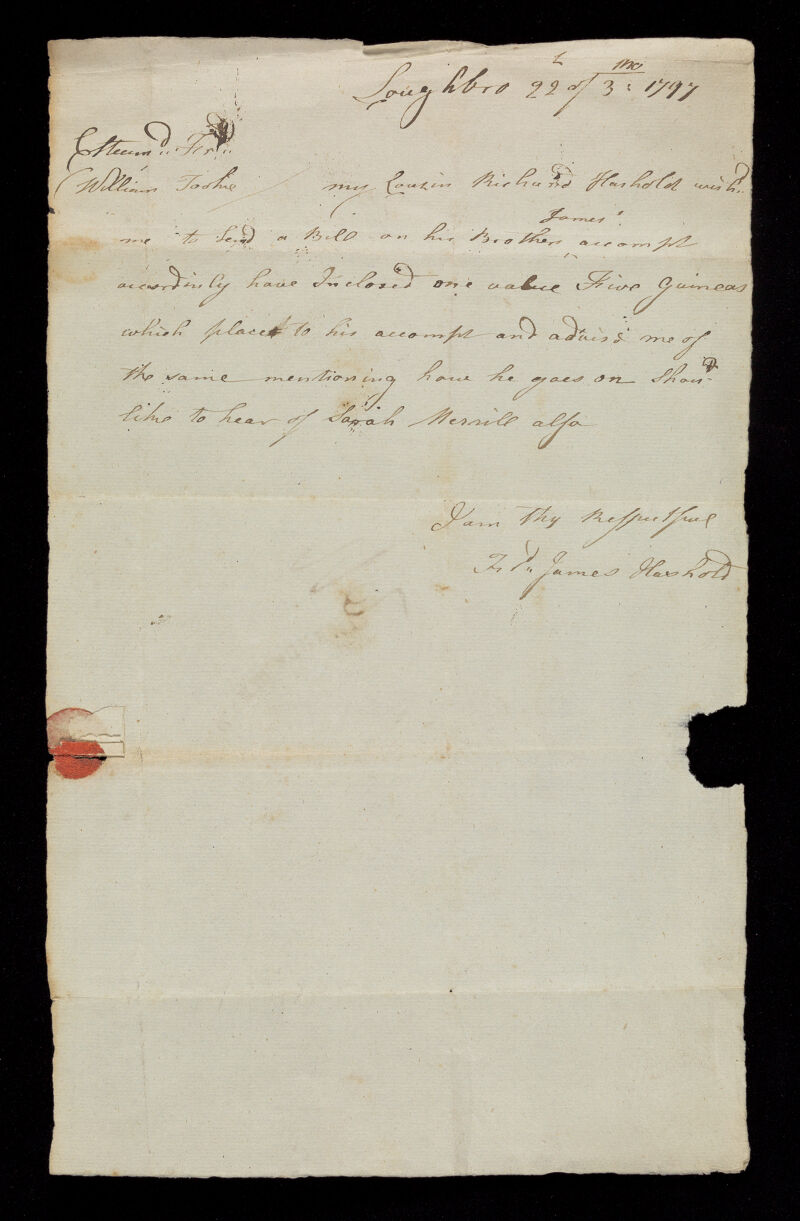 Loughbro 22th of 3mo: 1797
Esteem'd Frd
William Tooke / my Cousin Richard Hashold wishd
me to Send a Bill on his Brothers James' accompt
accordinly have Inclosed one value Five Guineas
which place to his accompt and advise me of
the same mentioning how he goes on Shoud
like to hear of Sarah Merrill also
I am thy Respectful
Frd James Hashold